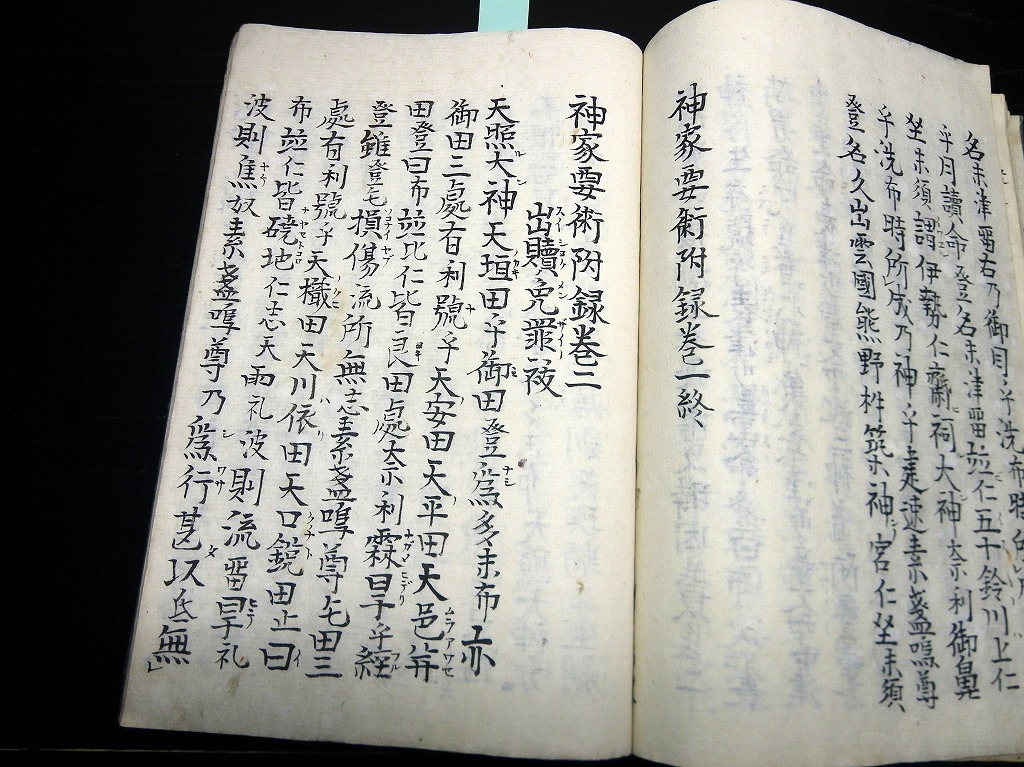 名未津畱右乃御目乎洗布時
乎月讀命登名未津畱並仁五十鈴川上仁
坐未須謂伊勢仁齋祠大神奈利御鼻
乎洗布時所成乃神乎建速素盞嗚尊
登名久出雲國熊野杵筑神宮仁坐未須
神家要術附録巻一終
神家要術附録巻二
出贖免罪祓
天照大神天垣田乎御田登為多末布亦
御田三處有利號乎天安田天平田天邑并
田登曰布並比仁皆良田處奈利霖旱乎経
登雖登毛損傷流所無志素盞嗚尊毛田三
處有利號乎天樴田天川依田天口鋭田止曰
布並仁皆磽地仁志天雨礼波則流畱旱礼
波則焦奴素盞嗚尊乃為行甚以氐無